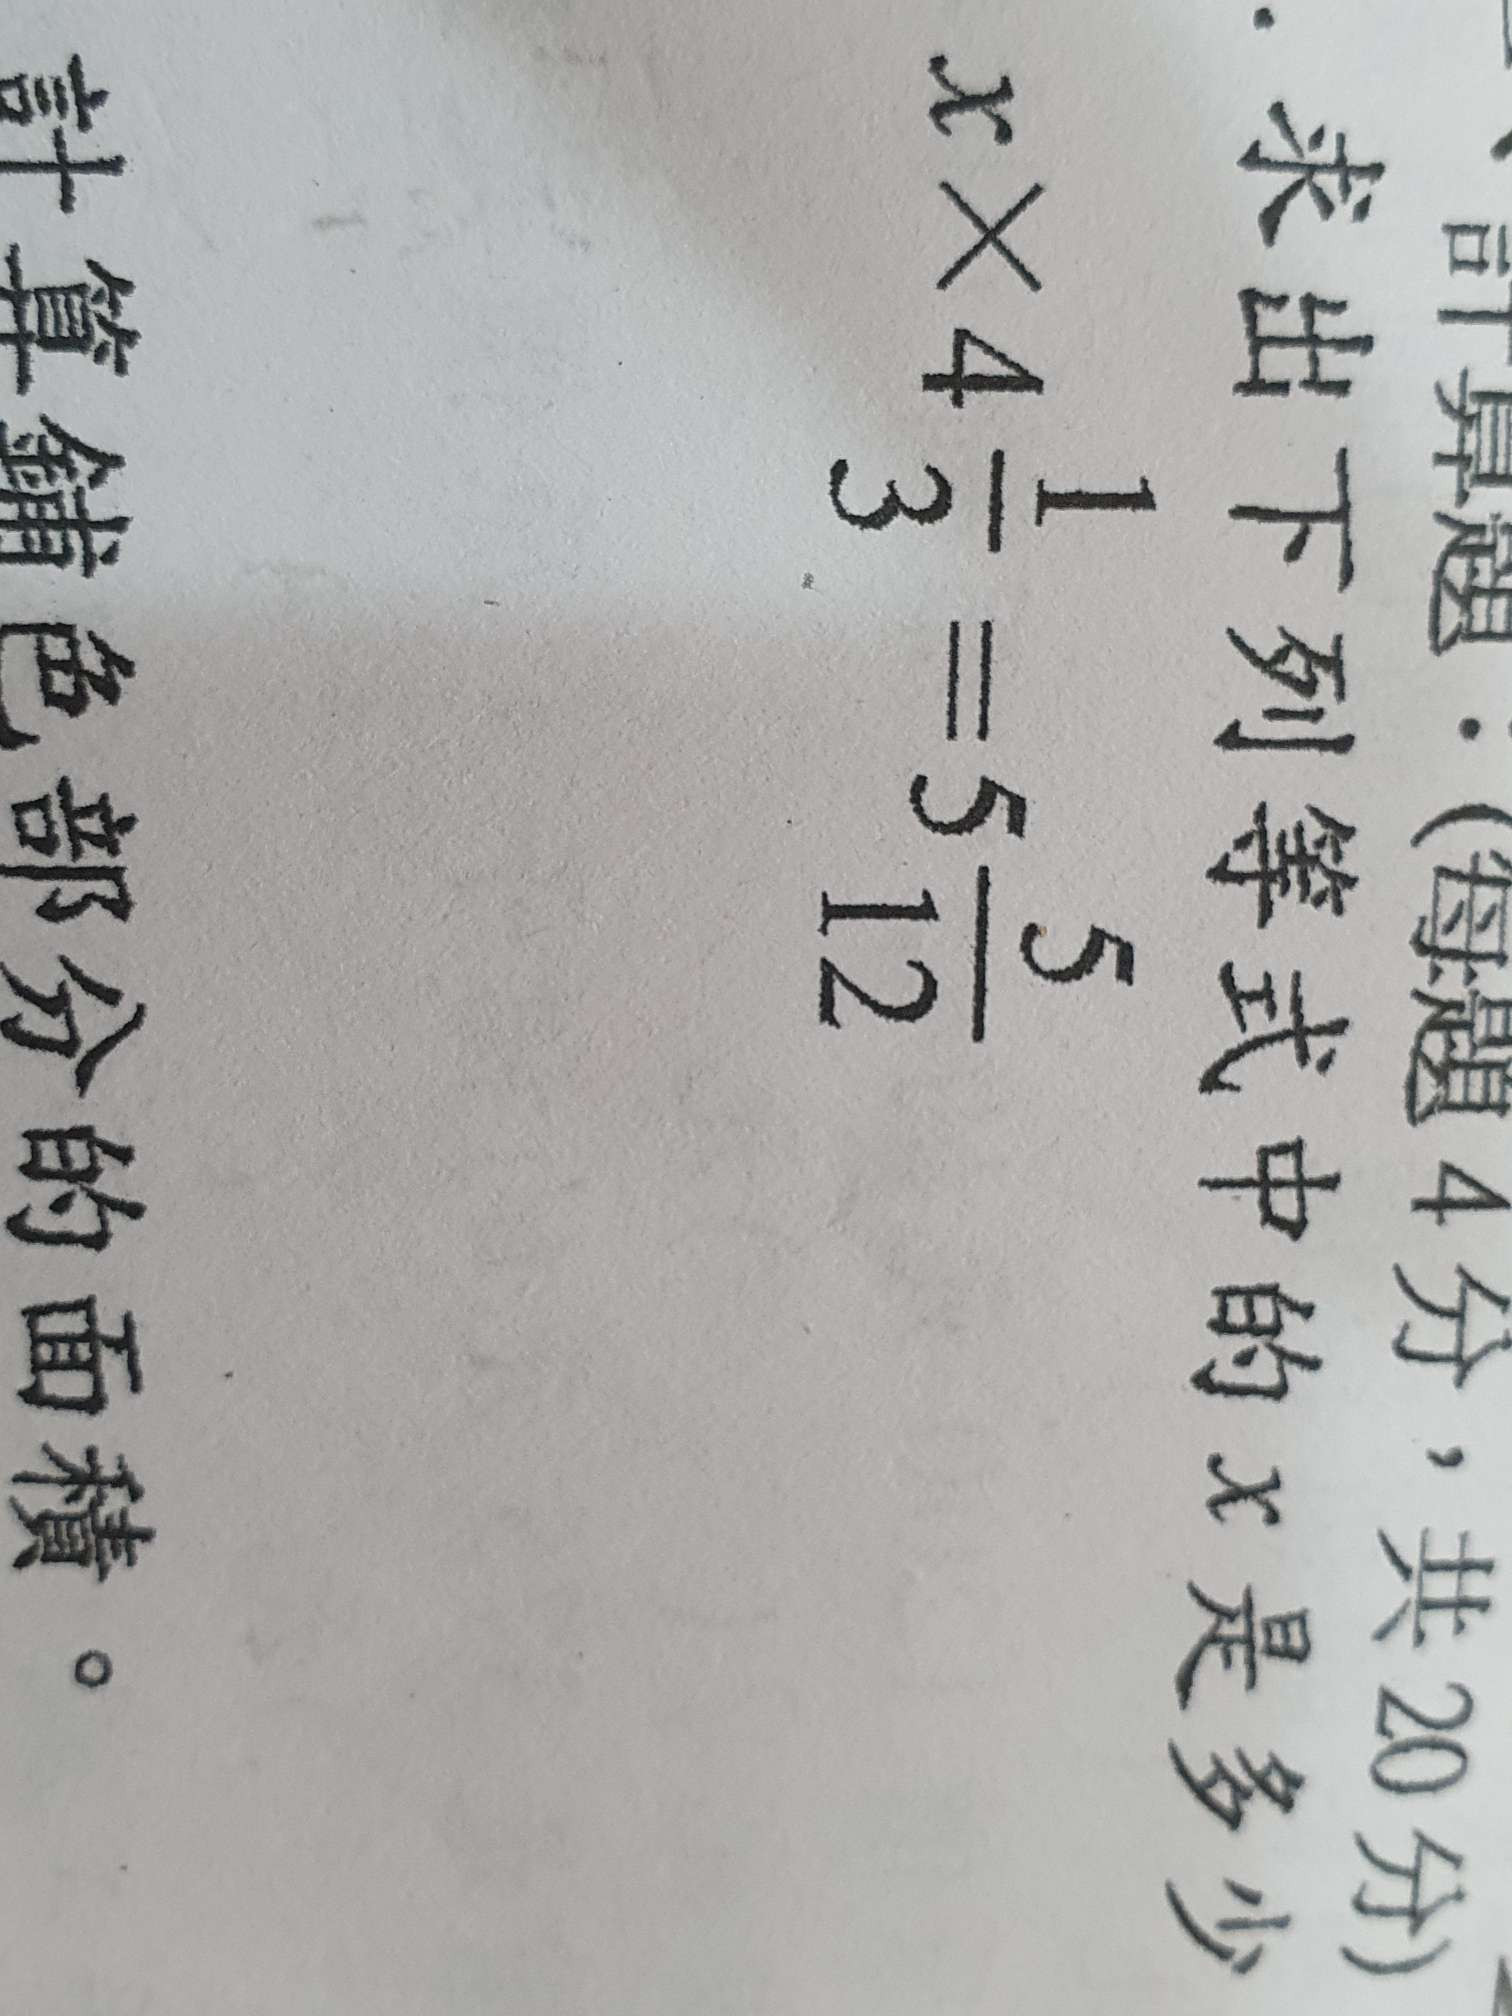 、計算題：(每題4分，共20分)
．求出下列等式中的x是多少
x×4 1/3 = 5 5/12
計算鋪色部分的面積。